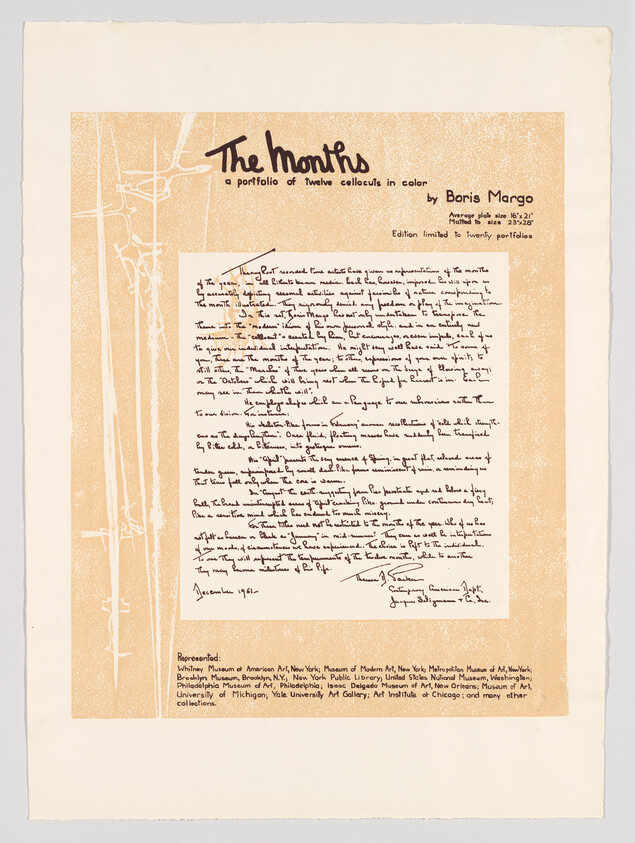 The Months
a portfolio of twelve cellocuts in color
by Boris Margo
Average plate size 16"x 21"
Matted to size 23"x28"
Edition limited to twenty portfolios
Throughout recorded time artists have given us representations of the months
of the year, in all hitherto known media. Each has, however, imposed his will upon us
by accurately depicting seasonal activities against facsimile of nature corresponding to
the month illustrated. They rigorously denied any freedom or play of the imagination.
In this set, Boris Margo has not only undertaken to transpose the
theme into the "modern" idiom of his own personal style and in an entirely new
medium - the "cellocut" created by him, but encourages, or even impels, each of us
to give our individual interpretation. He might very well have said: To some of
you, these are the months of the year; to others, expressions of your own spirit; to
still others, the "Marches" of those years when all seems on the verge of blowing away;
or the "Octobers" which will bring not when the hoped for harvest is in. Each
may see in them what he will".
He employs shapes which are a language to our subconscious rather than
to our vision. For instance:
His skeleton-like forms in "February" arouse recollections of "cold which strength-
ens as the days lengthen". Once fluid, floating masses have suddenly been transfixed
by bitter cold, or bitterness, into grotesque omens.
His "April" presents the very essence of Spring, in great flat, colored areas of
tender green, superimposed by small dark forms reminiscent of rain, or reminding us
that tears fall only when the core is warm.
In "August" the earth-suggesting form lies prostrate and red below a fiery
ball, the broad uninterrupted areas of "April" cracking like ground under continuous dry heat;
like a sensitive mind which has endured too much misery.
For these titles need not be restricted to the months of the year. Who of us has
not felt as barren or bleak as "January" in mid-summer? They can as well be interpretations
of our moods, of circumstances we have experienced. The choice is left to the individual.
To one they will represent the temperaments of the twelve months, while to another
they may become milestones of his life.
Theresa D. Parker
December 1961-
Contemporary American Dept.
Jacques Seligmann & Co. Inc.
Represented:
Whitney Museum of American Art, New York; Museum of Modern Art, New York; Metropolitan Museum of Art, New York;
Brooklyn Museum, Brooklyn, N.Y.; New York Public Library; United States National Museum, Washington;
Philadelphia Museum of Art, Philadelphia; Isaac Delgado Museum of Art, New Orleans; Museum of Art,
University of Michigan; Yale University Art Gallery; Art Institute of Chicago; and many other
collections.